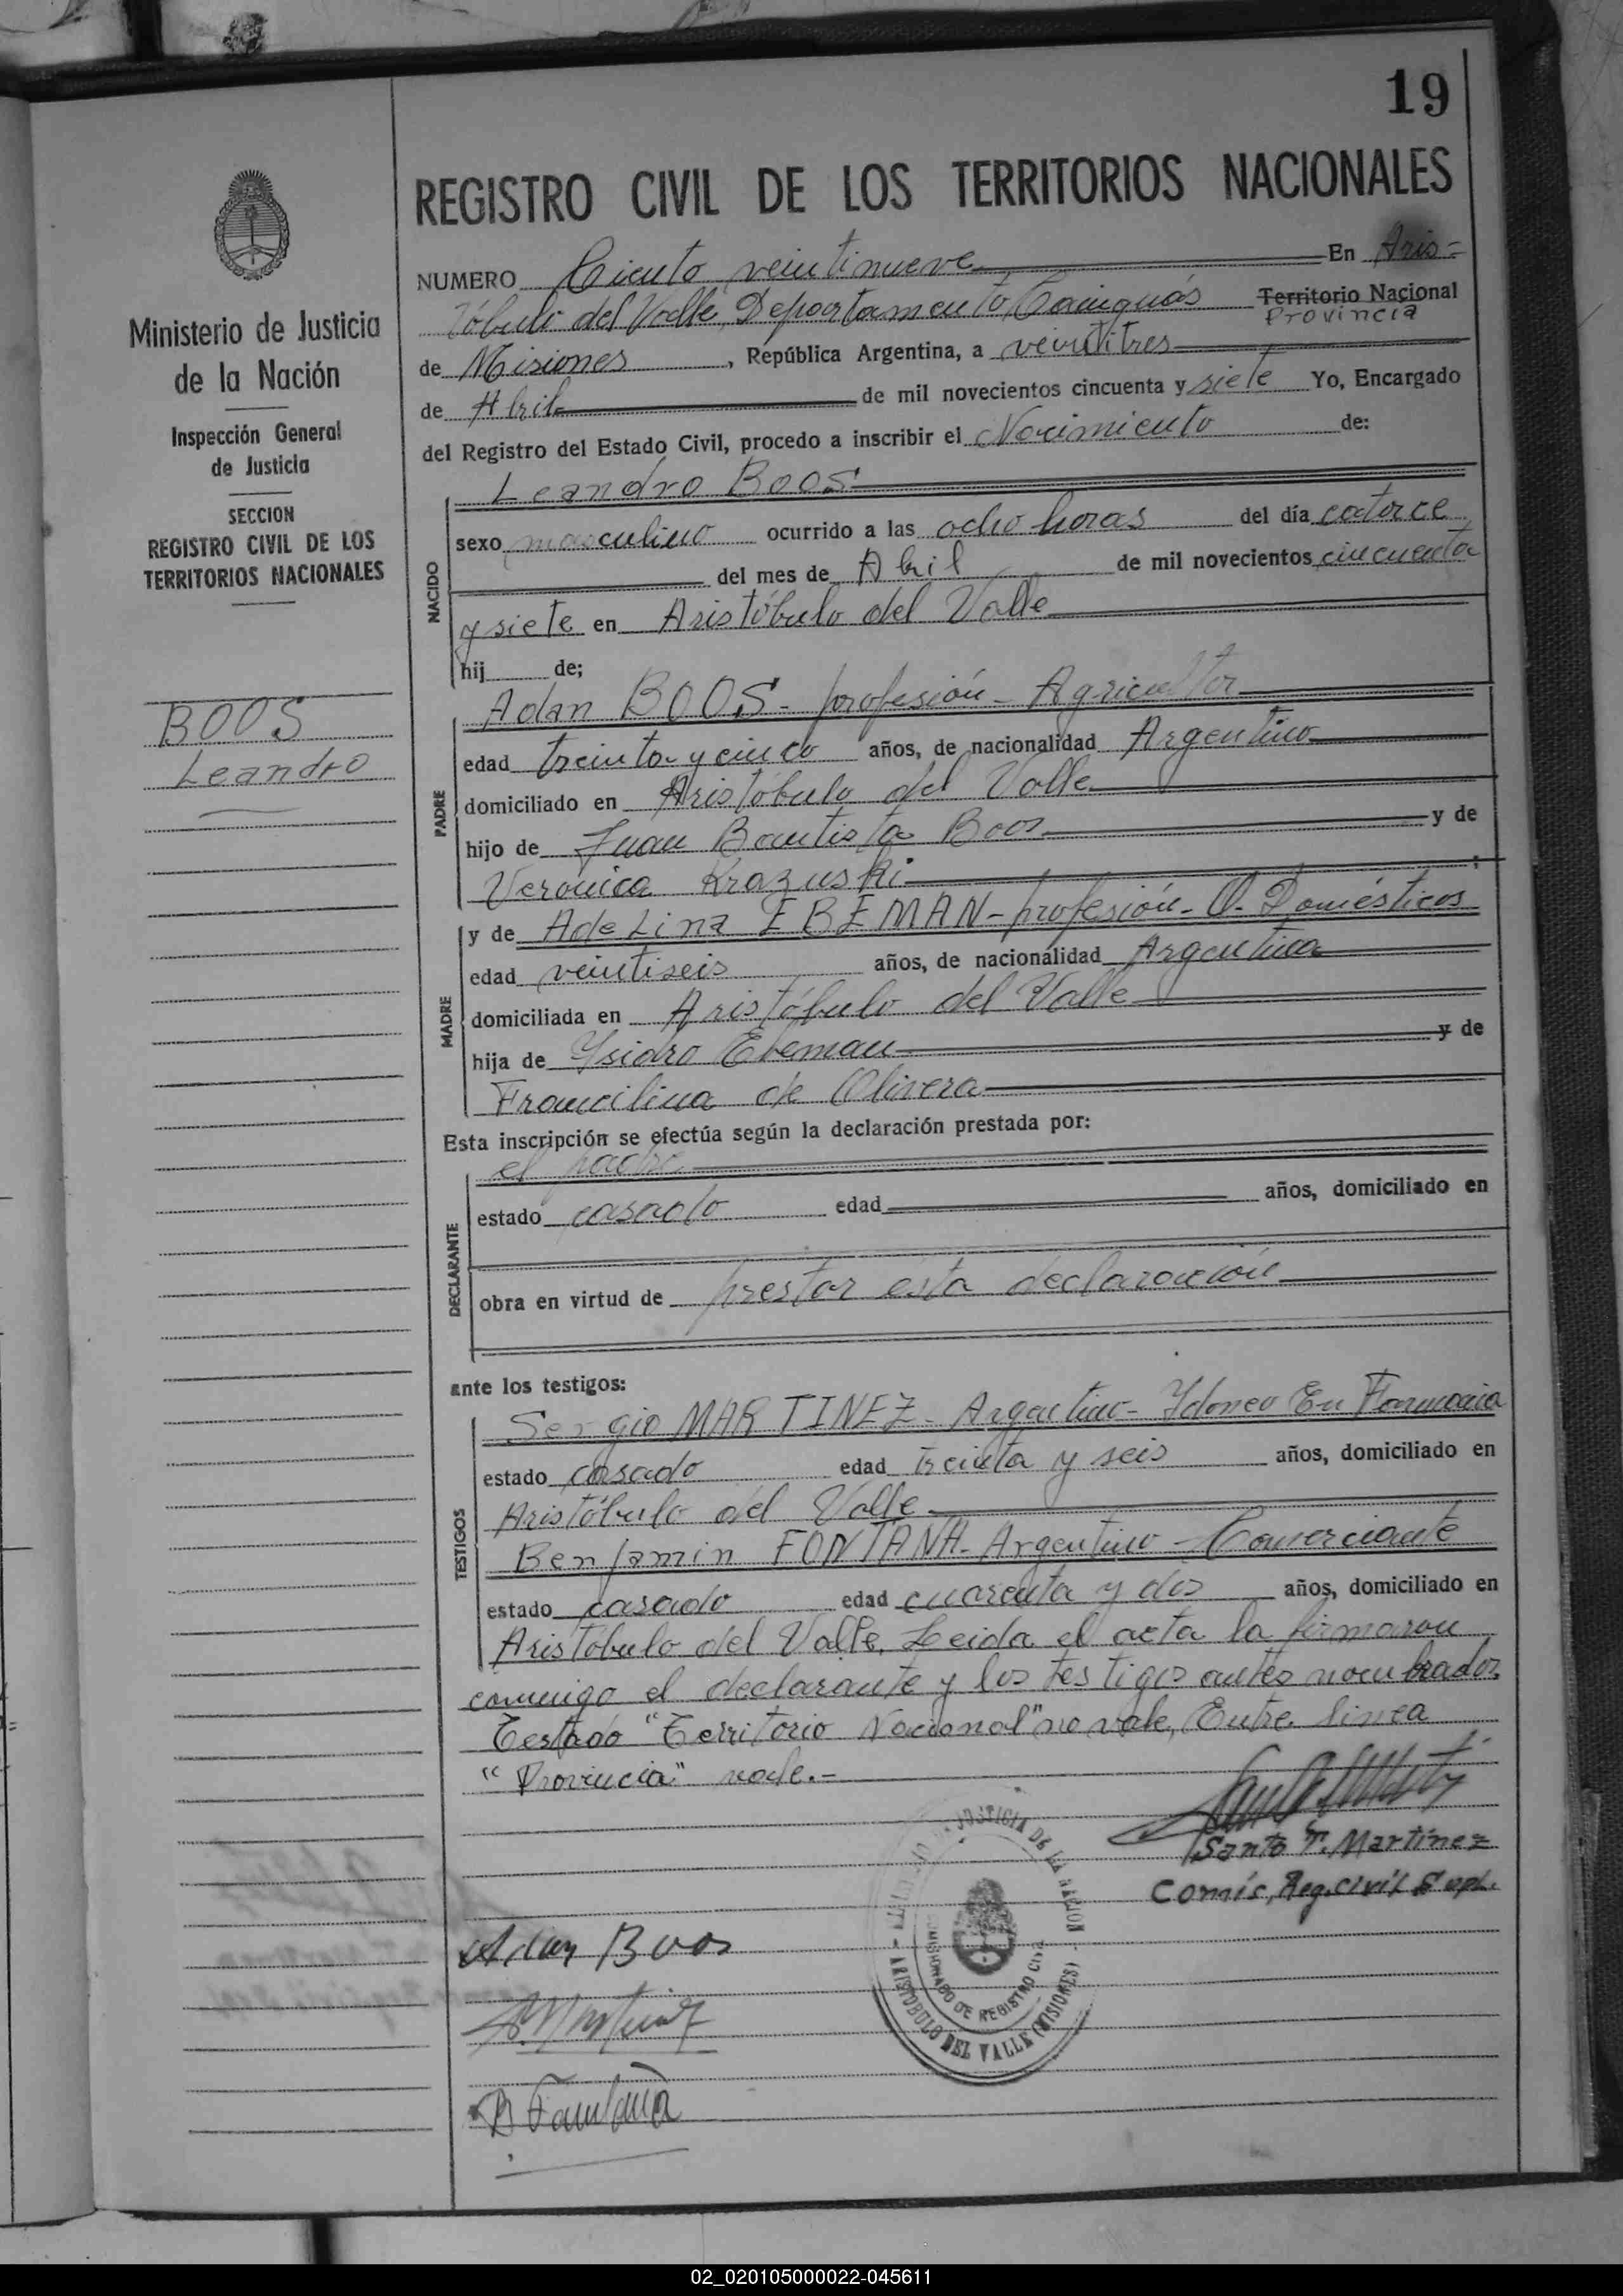 19
REGISTRO CIVIL DE LOS TERRITORIOS NACIONALES
Ministerio de Justicia
de la Nación
Inspección General
de Justicia
SECCION
REGISTRO CIVIL DE LOS
TERRITORIOS NACIONALES
BOOS
Leandro
NUMERO Ciento veintinueve En Aris=
tóbulo del Valle, Departamento Cainguás Territorio Nacional
Provincia
de Misiones, República Argentina, a veintitres
de Abril de mil novecientos cincuenta y siete Yo, Encargado
del Registro del Estado Civil, procedo a inscribir el Nacimiento de:
NACIDO
Leandro BOOS
sexo masculino ocurrido a las ocho horas del día catorce
del mes de Abril de mil novecientos cincuenta
y siete en Aristóbulo del Valle
hij de;
PADRE
Adan BOOS - profesión - Agricultor
edad treinta y cinco años, de nacionalidad Argentino
domiciliado en Aristóbulo del Valle
hijo de Juan Bautista Boos y de
Verónica Krazuski ;
MADRE
y de Adelina EBEMAN - profesión - Q. Domésticos
edad veintiseis años, de nacionalidad Argentina
domiciliada en Aristóbulo del Valle
hija de Ysidro Ebeman y de
Francilina de Olivera
Esta inscripción se efectúa según la declaración prestada por:
DECLARANTE
el padre
estado casado edad años, domiciliado en
obra en virtud de prestar esta declaración
ante los testigos:
TESTIGOS
Sergio MARTINEZ - Argentino - Ydoneo En Farmacia
estado casado edad treinta y seis años, domiciliado en
Aristóbulo del Valle
Benjamin FONTANA - Argentino - Comerciante
estado casado edad cuarenta y dos años, domiciliado en
Aristóbulo del Valle. Leida el acta la firmaron
conmigo el declarante y los testigos antes nombrados.
Testado "Territorio Nacional" no vale, Entre linea
"Provincia" vale.-
Santo T. Martínez
Comis, Reg. Civil Supl.
JUSTICIA DE LA NACION
COMISIONADO DE REGISTRO CIVIL
ARISTOBULO DEL VALLE (MISIONES)
Adan Boos
S. Martinez
B Fontana
02_020105000022-045611